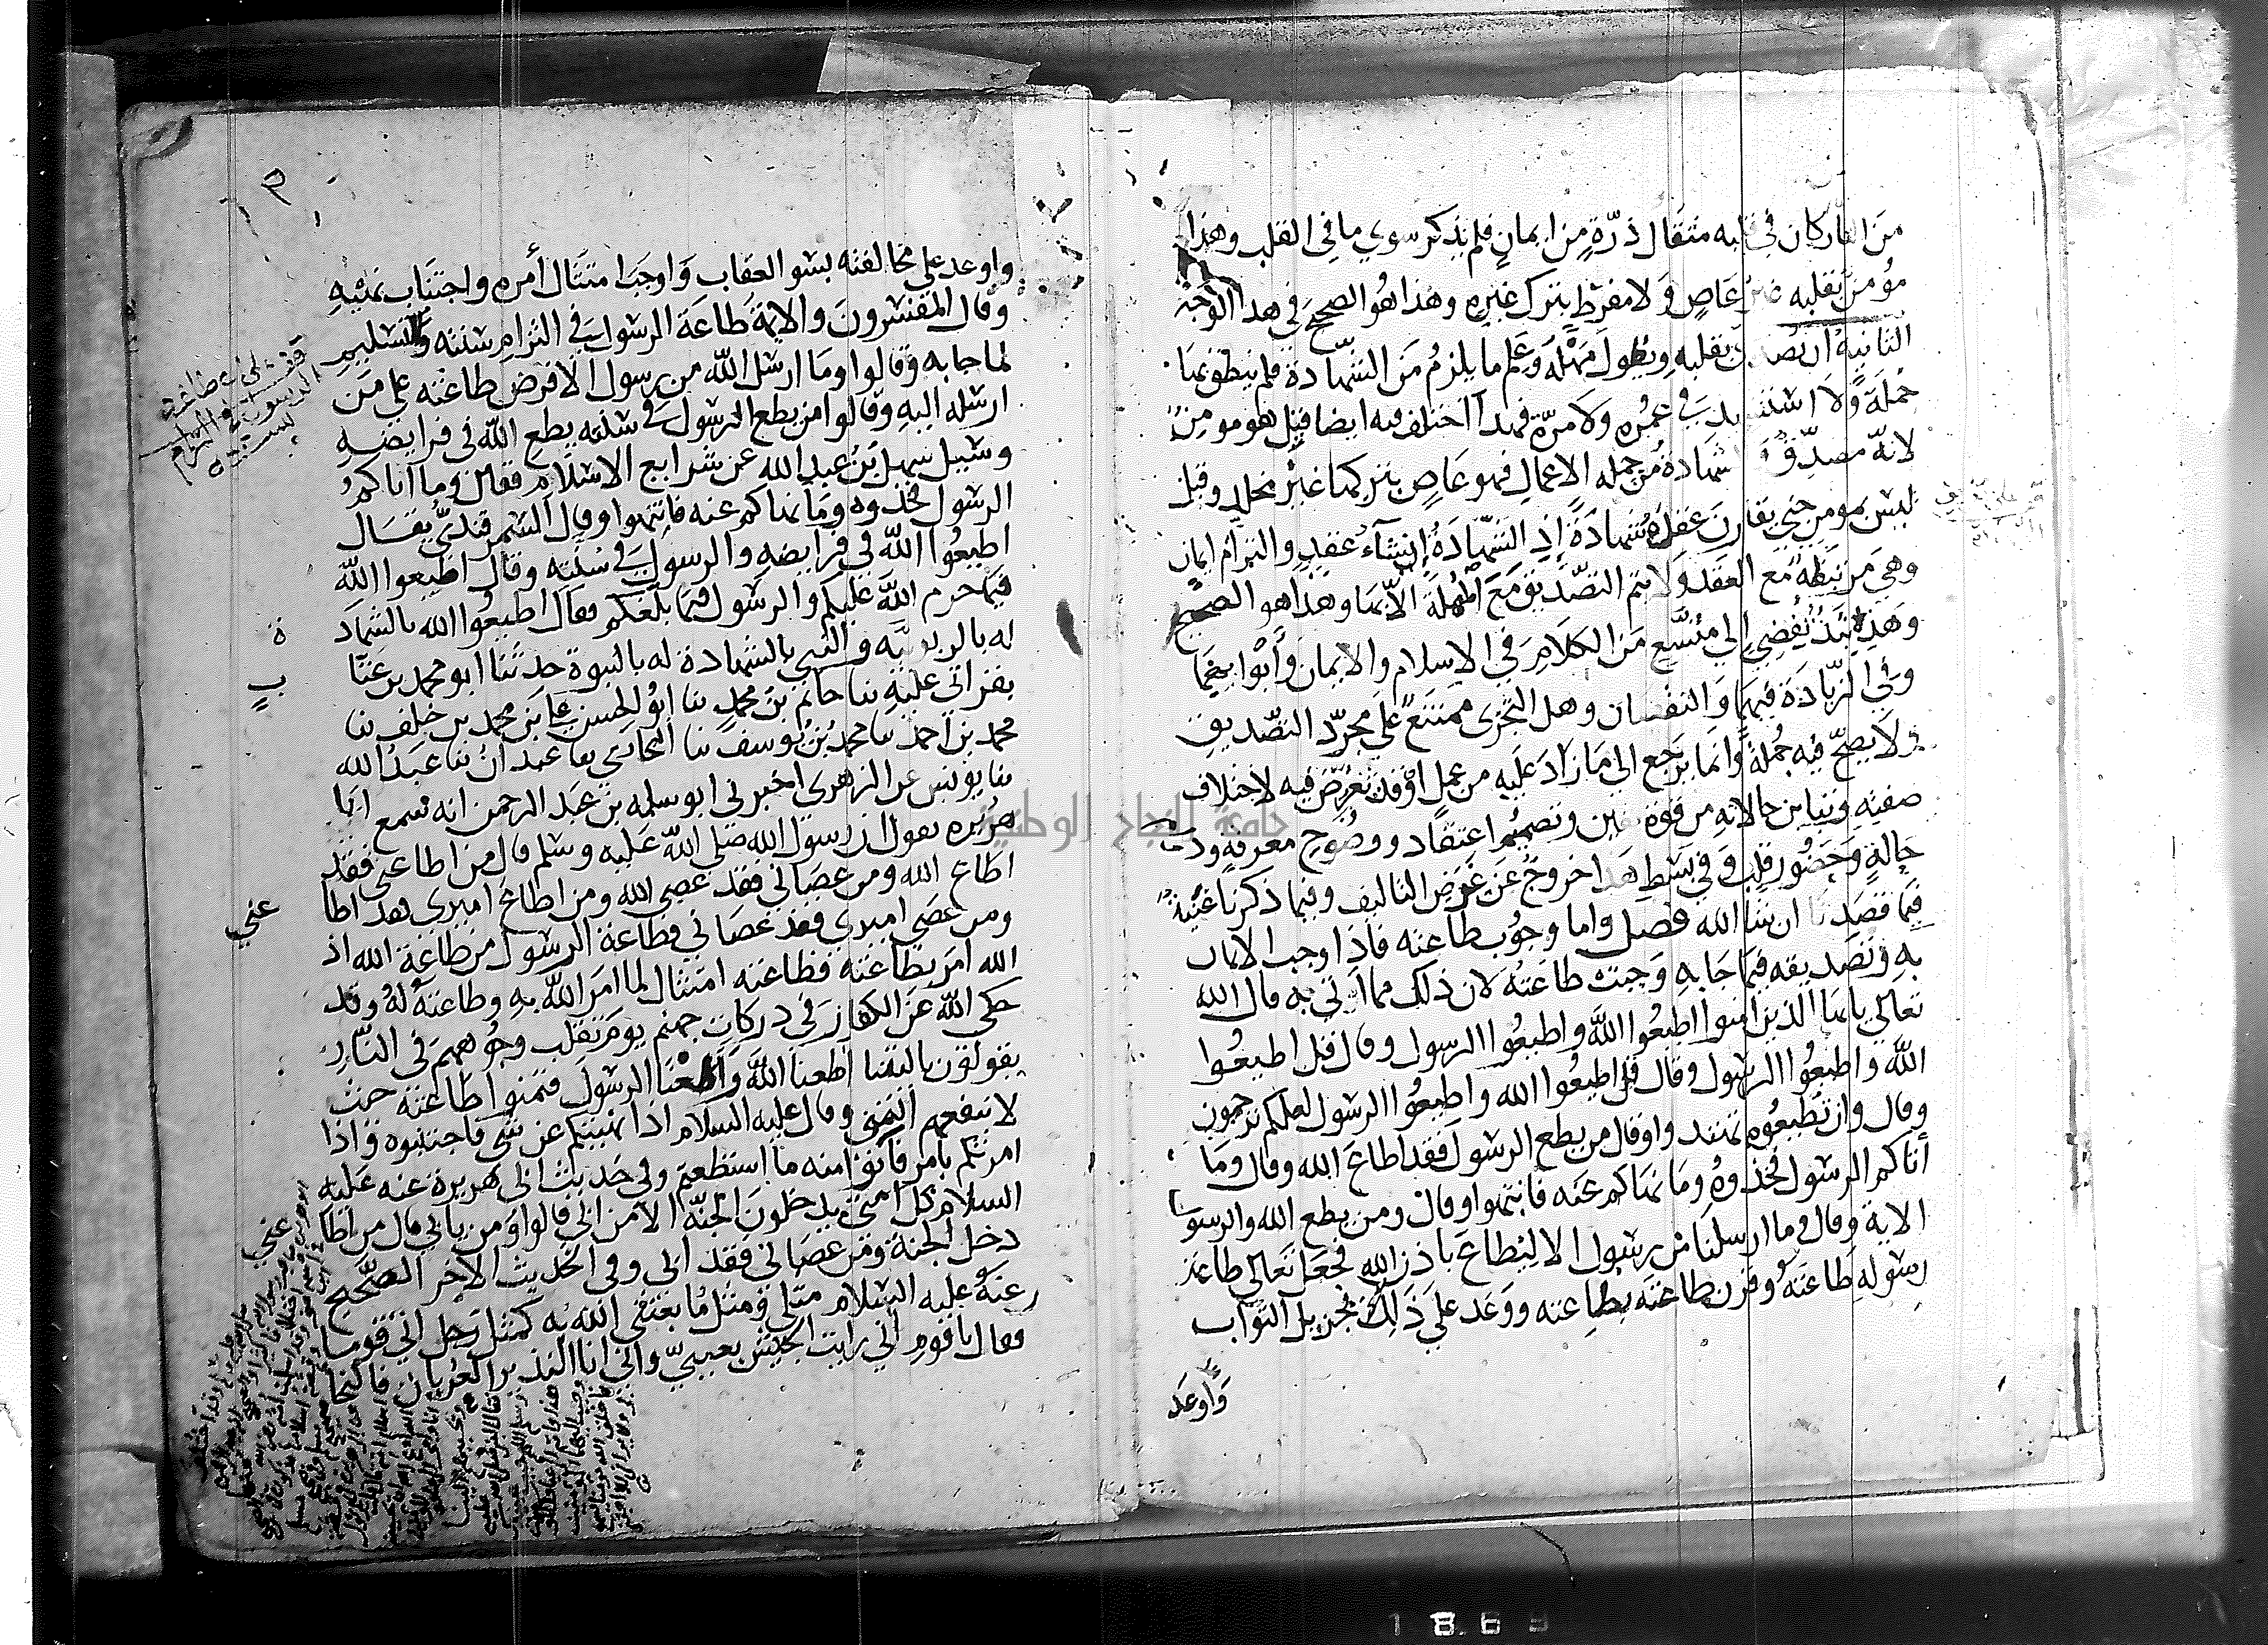 من النار من كان في قلبه مثقال ذرة من ايمان فلم يذكر سوي ما في القلب وهذا
مؤمن بقلبه غير عاص ولا مفرط بترك غيره وهذا هو الصحيح في هذا الوجه
الثانية ان يصدق بقلبه ويطول مهله وعلم ما يلزم من الشهادة فلم ينطق بها
جملة ولا استشهد في عمره ولا مرة فهذا اختلف فيه ايضا فقيل هو مومن
لانه مصدق والشهادة من جمله الاعمال فهو عاص بتركها غير مخلد وقيل
ليس بمومن حتي يقارن عقده شهادة اذ الشهادة انشاء عقد والتزام ايمان
وهي مرتبطة مع العقد ولا يتم التصديق مع المهلة الا بها وهذا هو الصحيح
وهذه نبذ يفضي الي متسع من الكلام في الاسلام والايمان وابوابهما
وفي الزيادة فيهما والنقصان وهل التجزى ممتنع علي مجرد التصديق
لا يصح فيه جملة وانما يرجع الي ما زاد عليه من عمل او قد تعرض فيه لاختلاف
صفته وتباين حالاته من قوة يقين وتصميم اعتقاد ووضوح معرفة ودوام
حالة وحضور قلب وفي بسط هذا خروج عن غرض التاليف وفيما ذكرنا غنية
فيما قصدنا ان شا الله فصل واما وجوب طاعته فاذا وجب الايمان
به وتصديقه فيما جا به وجبت طاعته لان ذلك مما اتي به قال الله
تعالي يا ايها الذين امنوا اطيعوا الله واطيعوا الرسول وقال قل اطيعوا
الله واطيعوا الرسول وقال قل اطيعوا الله واطيعوا الرسول لعلكم ترحمون
وقال وان تطيعوه تهتدوا وقال من يطع الرسول فقد اطاع الله وقال وما
أتاكم الرسول فخذوه وما نهاكم عنه فانتهوا وقال ومن يطع الله والرسول
الاية وقال وما ارسلنا من رسول الا ليطاع باذن الله فجعل تعالي طاعة
رسوله طاعته وقرن طاعته بطاعته ووعد علي ذلك بجزيل الثواب
واوعد
واوعد علي مخالفته بسو العقاب واوجب امتثال أمره واجتناب نهيه
وقال المفسرون والايمة طاعة الرسول في التزام سنته والتسليم
لما جا به وقالوا وما ارسل الله من رسول الا فرض طاعته علي من
ارسله اليه وقالوا من يطع الرسول في سنته يطع الله في فرايضه
وسيل سهل بن عبد الله عن شرايع الاسلام فقال وما اتاكم
الرسول فخذوه وما نهاكم عنه فانتهوا وقال السمرقندي يقال
اطيعوا الله في فرايضه والرسول في سنته وقال اطيعوا الله
فيما حرم الله عليكم والرسول فيما بلغكم وقال اطيعوا الله بالشهادة
له بالربوبية والنبي بالشهادة له بالنبوة حدثنا ابو محمد بن عتاب
بقراتي عليه نا حاتم بن محمد نا ابو الحسن علي بن محمد بن خلف نا
محمد بن احمد نا محمد بن يوسف نا البخاري نا عبدان نا عبد الله
نا يونس عن الزهري اخبرني ابو سلمه بن عبد الرحمن انه سمع ابا
هريره يقول ان رسول الله صلي الله عليه وسلم قال من اطاعني فقد
اطاع الله ومن عصاني فقد عصي الله ومن اطاع اميري فقد اطاعني
ومن عصي اميري فقد عصاني فطاعة الرسول من طاعة الله اذ
الله امر بطاعته فطاعته امتثال لما امر الله به وطاعته له وقد
حكي الله عن الكفار في دركات جهنم يوم تقلب وجوههم في النار
يقولون يا ليتنا اطعنا الله واطعنا الرسول فتمنوا طاعته حيث
لا ينفعهم التمني وقال عليه السلام اذا نهيتكم عن شي فاجتنبوه واذا
امرتكم بامر فأتوا منه ما استطعتم وفي حديث ابي هريرة عنه عليه
السلام كل امتي يدخلون الجنة الا من ابي قالوا ومن يابي قال من اطاعني
دخل الجنة ومن عصاني فقد ابي وفي الحديث الاخر الصحيح
عنه عليه السلام مثلي ومثل ما بعثني الله به كمثل رجل اتي قوما
فقال يا قوم اني رايت الجيش بعيني واني انا النذير العريان فالنجا
جامعة النجاح الوطنية
1863